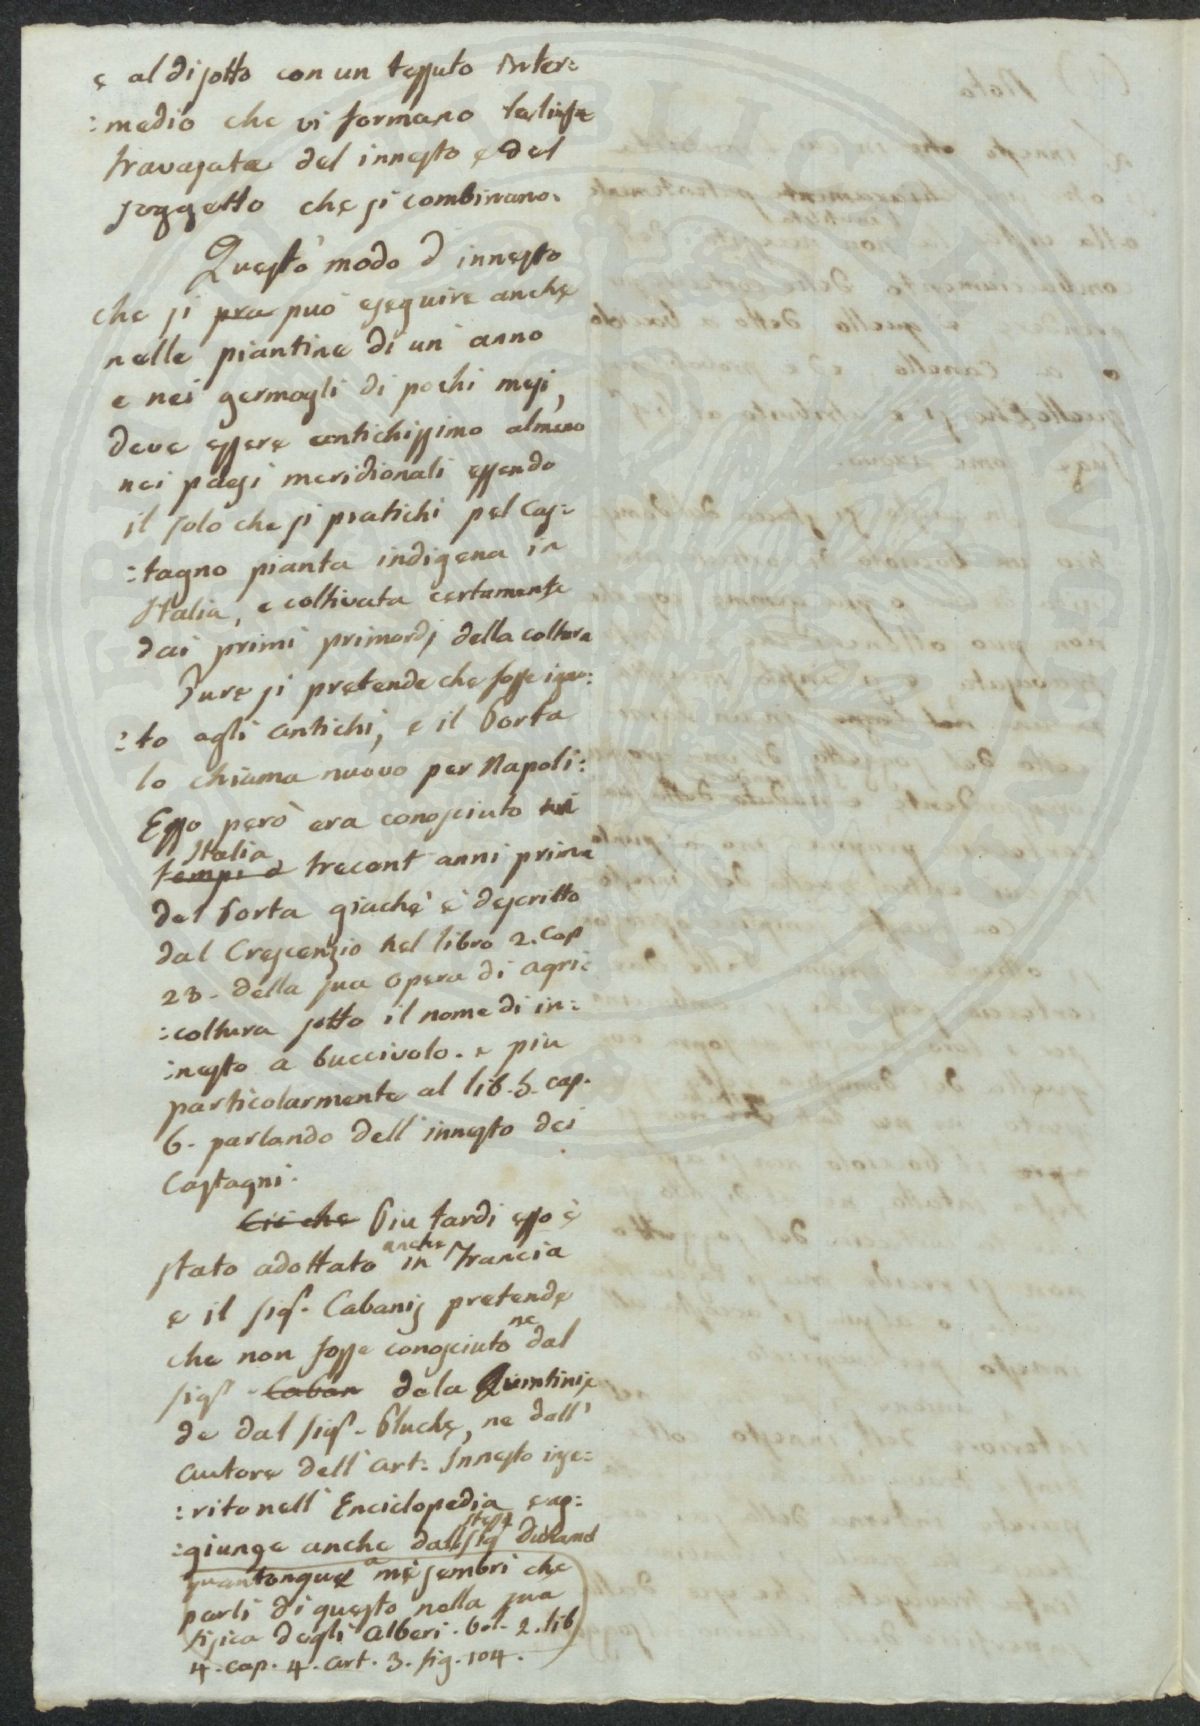 e al di sotto con un tessuto inter=
=medio che vi formano le linfe
travasate del innesto e del
soggetto che si combinano.
Questo modo d' innesto
che si pra può eseguire anche
nelle piantine di un anno
e nei germogli di pochi mesi,
deve essere antichissimo almeno
nei paesi meridionali essendo
il solo che si pratichi pel cas=
=tagno pianta indigena in
Italia, e coltivata certamente
dai primi primordj della coltura
Pure si pretende che fosse igno=
=to agli antichi, e il Porta
lo chiama nuovo per Napoli:
Esso però era conosciuto in
Italia
tempi d trecent anni prima
del Porta giachè è descritto
dal Crescenzio nel libro 2. cap
23. della sua opera di agri=
=coltura sotto il nome di in=
=nesto a bucciuolo. e piu
particolarmente al lib. 5. cap.
6. parlando dell' innesto dei
Castagni.
Ciò che Piu tardi esso è
stato adottato anche in Francia
e il sigr. Cabanis pretende
che non fosse conosciuto ne dal
sigr. Caban dela Quintinie
de dal sigr. Pluche, ne dall'
autore dell' art. Innesto inse=
=rito nell' Enciclopedia e ag=
=giunge anche dallo stesso sigr Duhamel
quantonque a me sembri che
parli di questo nella sua
fisica degli Alberi. vol. 2. lib
4. cap. 4. art. 3. fig. 104.